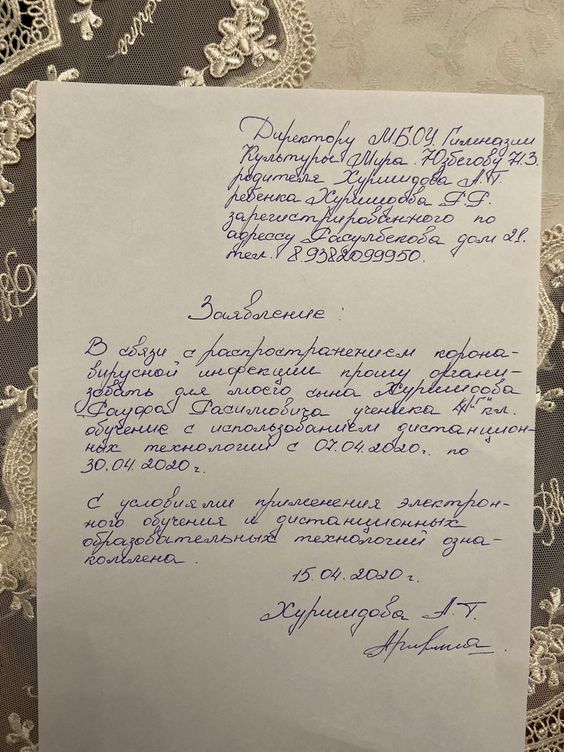 Директору М.Б.О.У. Гимназии
Культуры Мира. Юзбегову Э.З.
родителя Хуршидова А.Т.
ребенка Хуршидова Р.Р.
зарегистрированного по
адрессу Расулбекова дом 21.
тел. 8.9382099950.
Заявление:
В связи с распространением корона-
вирусной инфекции прошу органи-
зовать для моего сына Хуршидова
Рауфа Расимовича ученика кл.
обучение с использованием дистанцион-
ных технологий с 07.04.2020г. по
30.04.2020г.
С условиями применения электрон-
ного обучения и дистанционных
образовательных технологий озна-
комлена.
15.04.2020г.
Хуршидова А.Т.